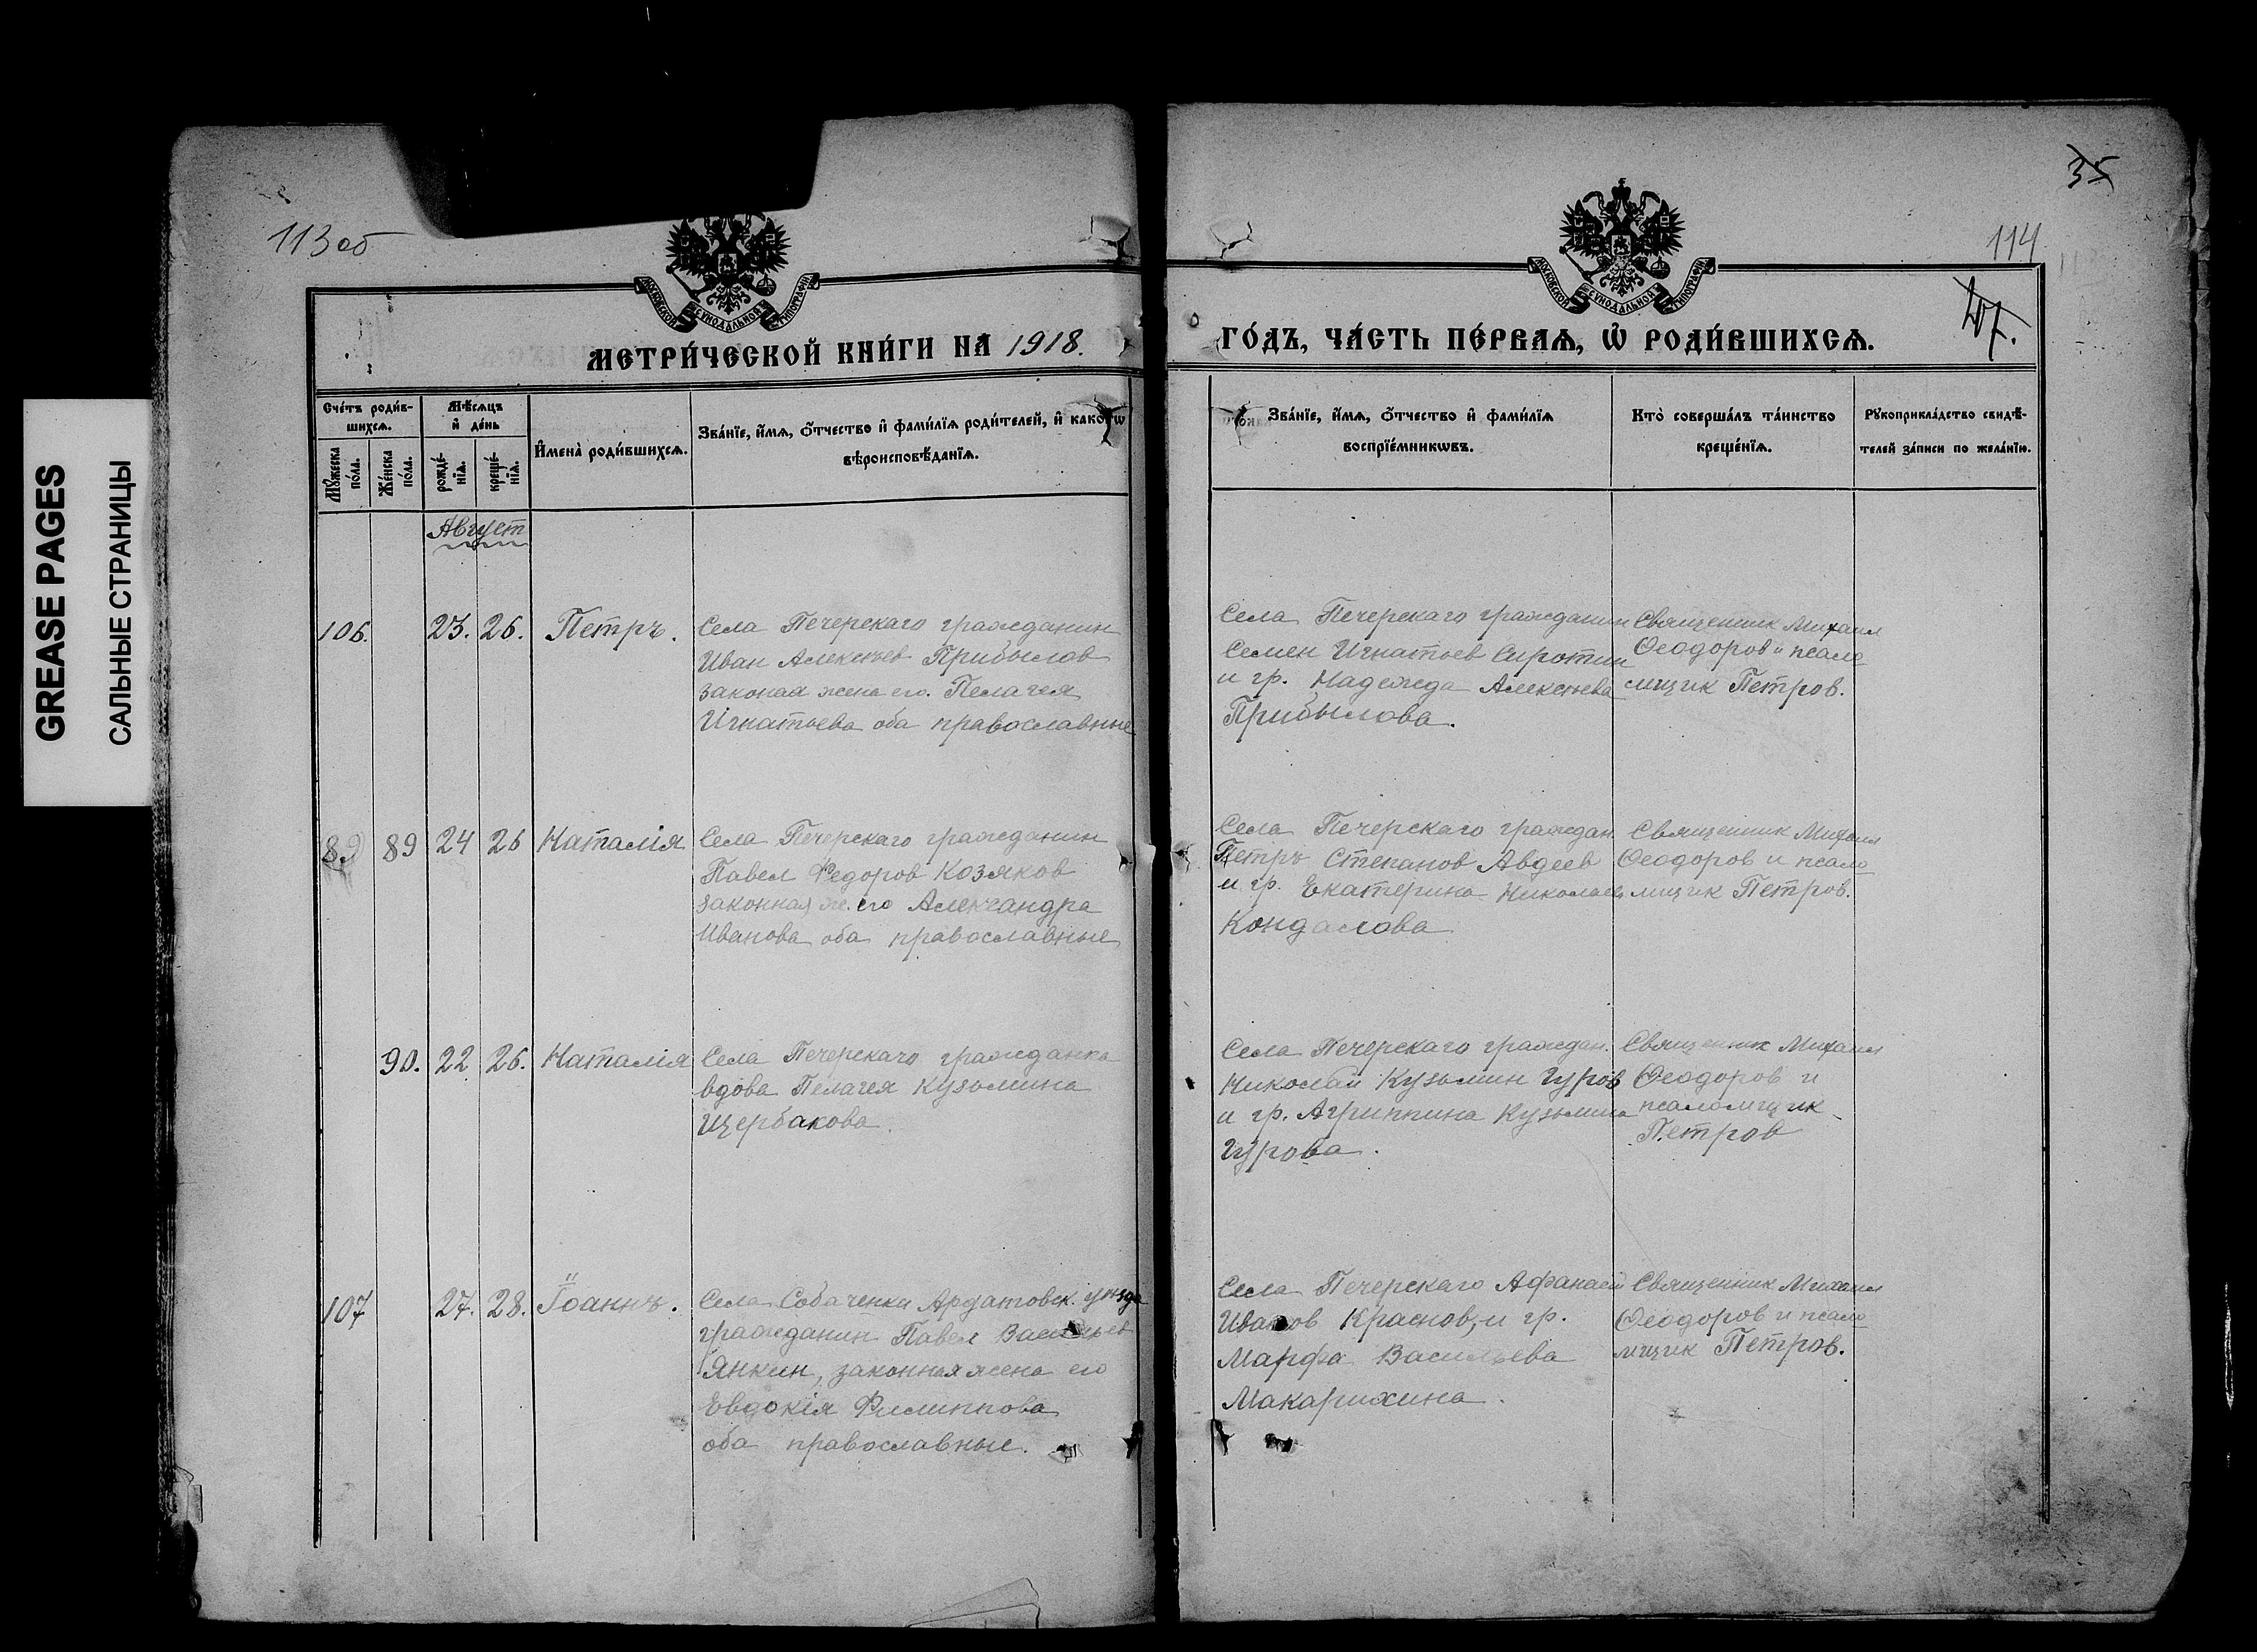 GREASE PAGES
САЛЬНЫЕ СТРАНИЦЫ
113 об
МОСКОВСКОЙ СѴНОДАЛЬНОЙ ТИПОГРАФІИ
МЕТРИ́ЧЕСКОЙ КНИ́ГИ НА 1918.
Сче́тъ роди́в-
шихсѧ.
Мѣ́сѧцъ
и҆ де́нь
Мꙋ́жеска
по́ла.
Же́нска
по́ла.
рожде́-
нїѧ.
креще́-
нїѧ.
И҆мена̀ роди́вшихсѧ.
Зва́нїе, и҆́мѧ, ѻ҆́тчество и҆ фами́лїѧ роди́телей, и҆ како́гѡ
вѣроисповѣ́данїѧ.
Август
106. 23. 26. Петръ.
Села Печерскаго гражданин
Иван Алексѣев Прибылов
законая жена его. Пелагея
Игнатьева оба православные
89 89 24 26 Наталія
Села Печерскаго гражданин
Павел Федоров Козяков
законная ж. его Александра
Иванова оба православные
90. 22 26. Наталія
Села Печерскаго гражданка
вдова Пелагея Кузьмина
Щербакова.
107 27. 28. Іоаннъ.
Села Собаченки Ардатовск. уѣзда
гражданин Павел Васильев
Янкин, законная жена его
Евдокія Филиппова
оба православные.
35
114
107.
МОСКОВСКОЙ СѴНОДАЛЬНОЙ ТИПОГРАФІИ
ГО́ДЪ, ЧА́СТЬ ПЕ́РВАѦ, Ѡ҆ РОДИ́ВШИХСѦ.
Зва́нїе, и҆́мѧ, ѻ҆́тчество и҆ фами́лїѧ
воспрїе́мникѡвъ.
Кто̀ соверша́лъ та́инство
креще́нїѧ.
Рꙋкоприкла́дство свидѣ́-
телей за́писи по жела́нїю.
Села Печерскаго гражданин
Семен Игнатьев Сиротин
и гр. Надежда Алексѣева
Прибылова.
Священник Михаил
Ѳеодоров и псало
мщик Петров.
Села Печерскаго граждан.
Петръ Степанов Авдеев
и гр. Екатерина Николаев
Кондалова
Священник Михаил
Ѳеодоров и псало
мщик Петров.
Села Печерскаго граждан.
Николай Кузьмин Гуров
и гр. Агриппина Кузьмина
Гурова.
Священник Михаил
Ѳеодоров и
псаломщик
Петров
Села Печерскаго Афанасий
Иванов Краснов, и гр.
Марфа Васильева
Макарихина.
Священник Михаил
Ѳеодоров и псало
мщик Петров.